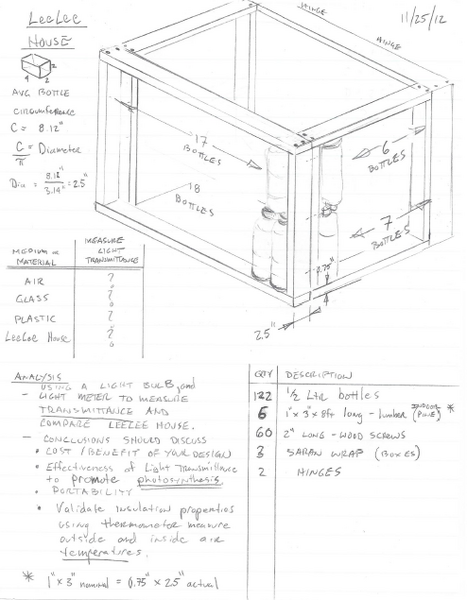 LeeLee
House
11/25/12
HINGE
HINGE
4 2
AVG BOTTLE
CIRCUMFERENCE
C = 8.12"
C/π = Diameter
Dia = 8.12"/3.14" = 2.5"
17
BOTTLES
18
BOTTLES
6
BOTTLES
7
BOTTLES
0.75"
2.5"
MEDIUM or MATERIAL | MEASURE LIGHT TRANSMITTANCE
AIR ?
GLASS ?
PLASTIC ?
LeeLee House ?
ANALYSIS
- USING A LIGHT BULB, and
LIGHT METER TO MEASURE
TRANSMITTANCE AND
COMPARE LEELEE HOUSE.
- CONCLUSIONS SHOULD DISCUSS
• COST / BENEFIT OF YOUR DESIGN
• Effectiveness of Light Transmittance
to promote photosynthesis
• PORTABILITY
• Validate insulation properties
using thermometer measure
outside and inside air
temperatures.
* 1" x 3" nominal = 0.75" x 2.5" actual
QTY DESCRIPTION
122 1/2 Ltr bottles
6 1" x 3" x 8ft long - lumber (PINE) *
60 2" LONG - WOOD SCREWS
3 SARAN WRAP (BOXES)
2 HINGES